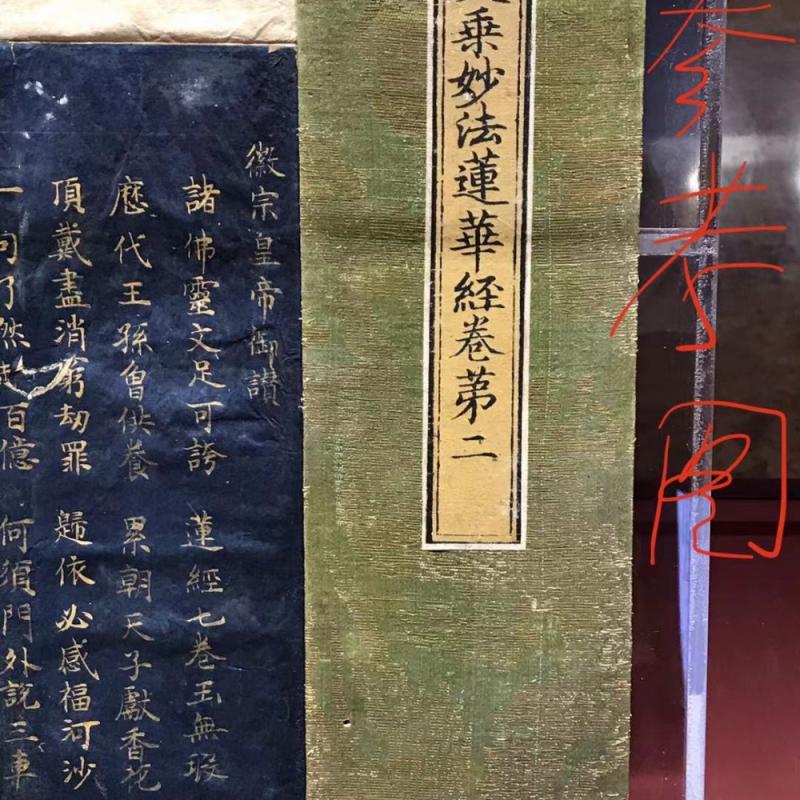 参考图
乘妙法蓮華経卷苐二
徽宗皇帝御讃
諸佛靈文足可誇 蓮経七卷玉無瑕
歷代王孫曾供養 累朝天子獻香花
頂戴盡消窮劫罪 歸依必感福河沙
一句了然超百億 何須門外說三車